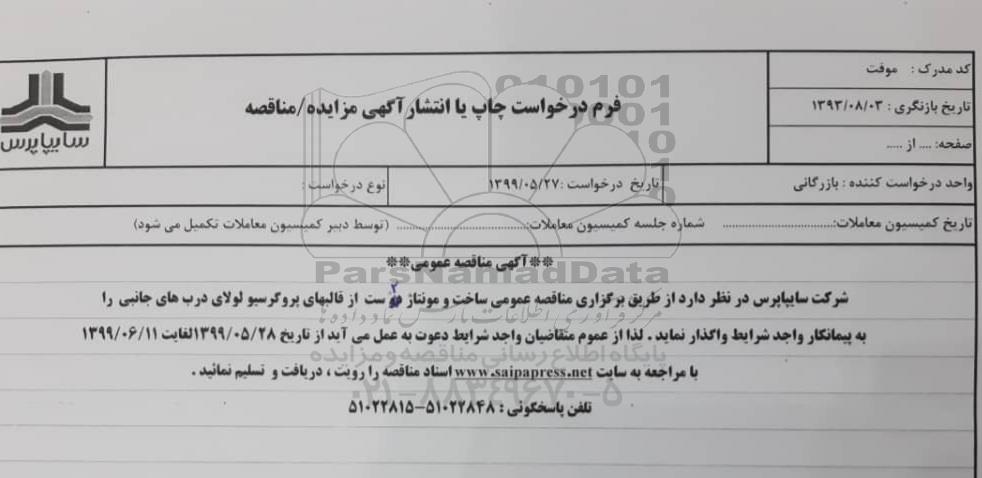 کد مدرک : موقت
تاریخ بازنگری : ۱۳۹۳/۰۸/۰۳
صفحه: .... از .....
فرم درخواست چاپ یا انتشار آگهی مزایده/مناقصه
سایپاپرس
واحد درخواست کننده : بازرگانی تاریخ درخواست :۱۳۹۹/۰۵/۲۷ نوع درخواست :
تاریخ کمیسیون معاملات:.................................. شماره جلسه کمیسیون معاملات:.................................. (توسط دبیر کمیسیون معاملات تکمیل می شود)
**آگهی مناقصه عمومی**
شرکت سایپاپرس در نظر دارد از طریق برگزاری مناقصه عمومی ساخت و مونتاژ ۲ ست از قالبهای پروگرسیو لولای درب های جانبی را
به پیمانکار واجد شرایط واگذار نماید . لذا از عموم متقاضیان واجد شرایط دعوت به عمل می آید از تاریخ ۱۳۹۹/۰۵/۲۸لغایت ۱۳۹۹/۰۶/۱۱
با مراجعه به سایت www.saipapress.net اسناد مناقصه را رویت ، دریافت و تسلیم نمائید .
تلفن پاسخگوئی : ۵۱۰۲۲۸۴۸-۵۱۰۲۲۸۱۵
ParsNamadData
پایگاه اطلاع رسانی مناقصه و مزایده
۰۲۱-۸۸۳۴۹۶۷۰-۵